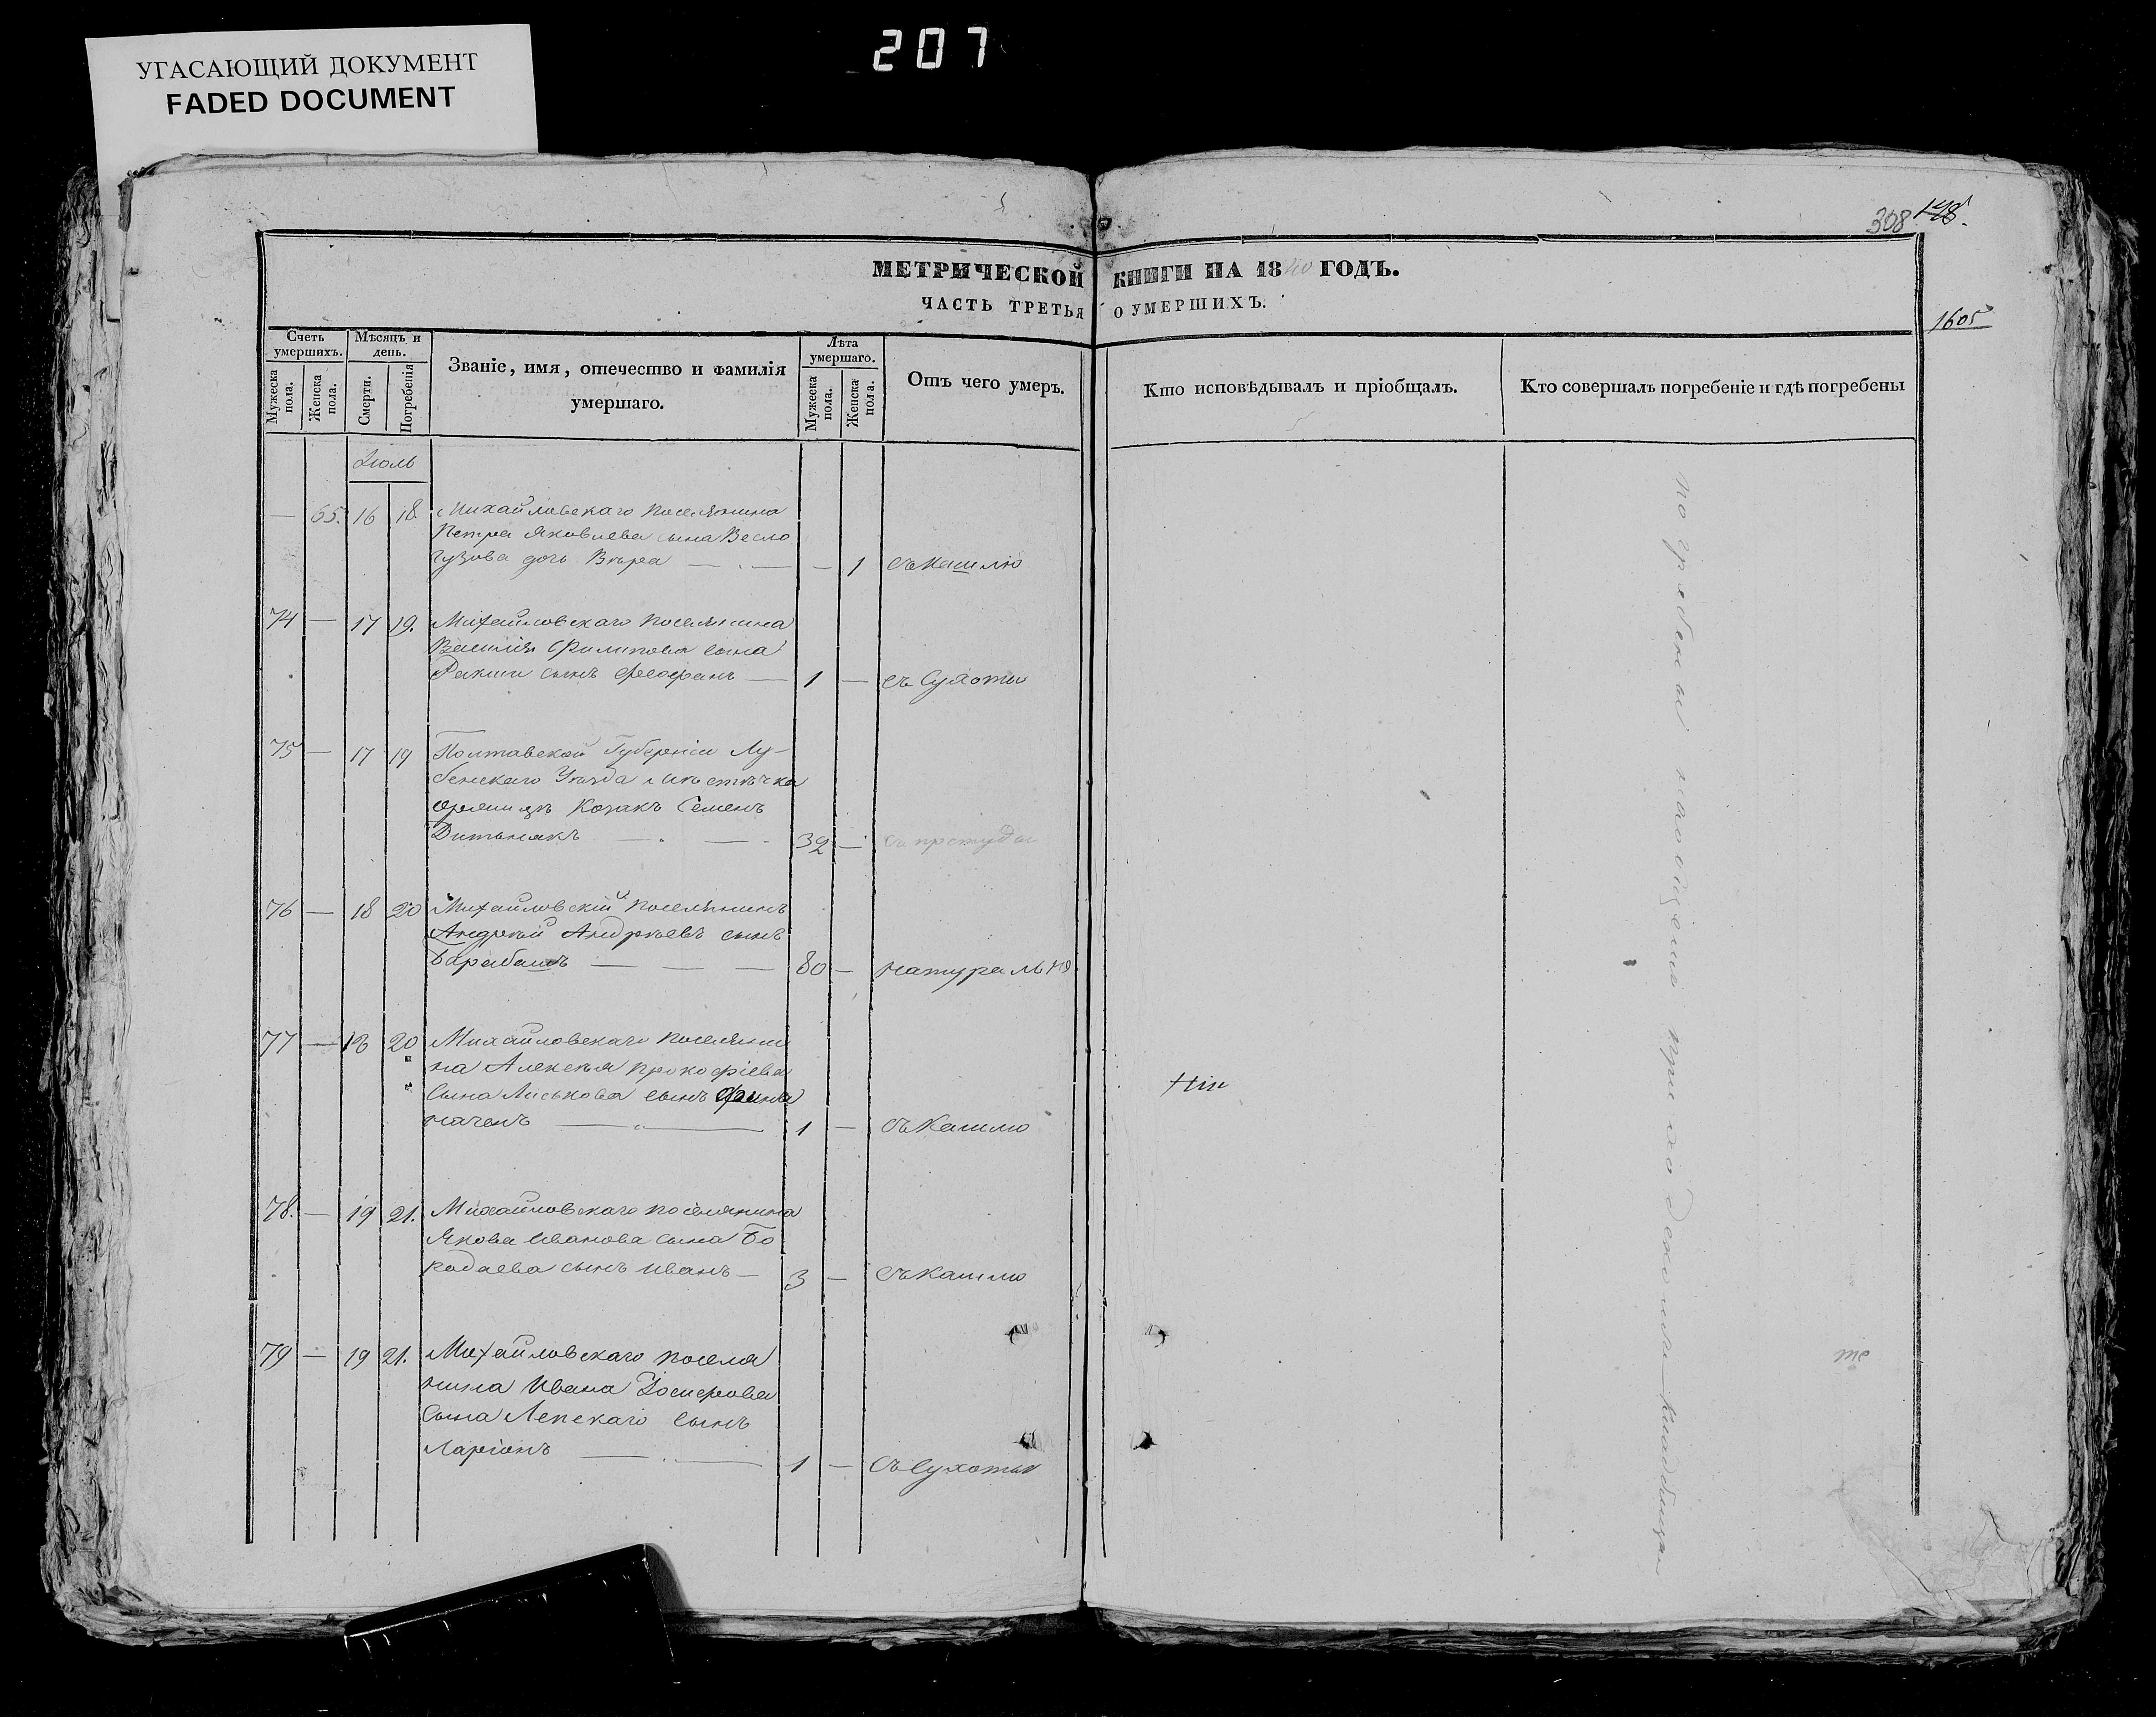 УГАСАЮЩИЙ ДОКУМЕНТ
FADED DOCUMENT
207
308 148.
1605
МЕТРИЧЕСКОЙ КНИГИ НА 1840 ГОДЪ.
ЧАСТЬ ТРЕТЬЯ О УМЕРШИХЪ.
Счетъ умершихъ.
Мужеска пола.
Женска пола.
Мѣсяцъ и день.
Смерти.
Погребенія
Званіе, имя, отечество и фамилія
умершаго.
Лѣта умершаго.
Мужеска пола.
Женска пола.
Отъ чего умеръ.
Кто исповѣдывалъ и пріобщалъ.
Кто совершалъ погребеніе и гдѣ погребены
Іюль
— 65. 16 18 Михайловскаго поселянина
Петра Яковлева сына Весло
гузова дочь Вѣра — — 1 съ кашлю
74 — 17 19. Михайловскаго поселянина
Василія Филипова сына
сынъ Феофанъ — 1 — съ Сухоты
75 — 17 19 Полтавской Губерніи Лу-
бенскаго Уѣзда мѣстѣчка
Козакъ Семенъ
— — 32 — съ простуды
76 — 18 20 Михайловскій поселянинъ
Андрѣй Андрѣевъ сынъ
Барабашъ — — — 80 — натурально
77 — 18 20 Михайловскаго поселяни
на Алексѣя Прокофіева
сына Лиськова сынъ
— — 1 — съ Кашлю
78. — 19 21. Михайловскаго поселянина
Якова Иванова сына Бо
родаева сынъ Иванъ — 3 — съ кашлю
79 — 19 21. Михайловскаго поселя
нина Ивана Іосифова
сына Лепскаго сынъ
Ларіонъ — — 1 — съ Сухоты
погребены на общемъ приходскомъ кладбищѣ